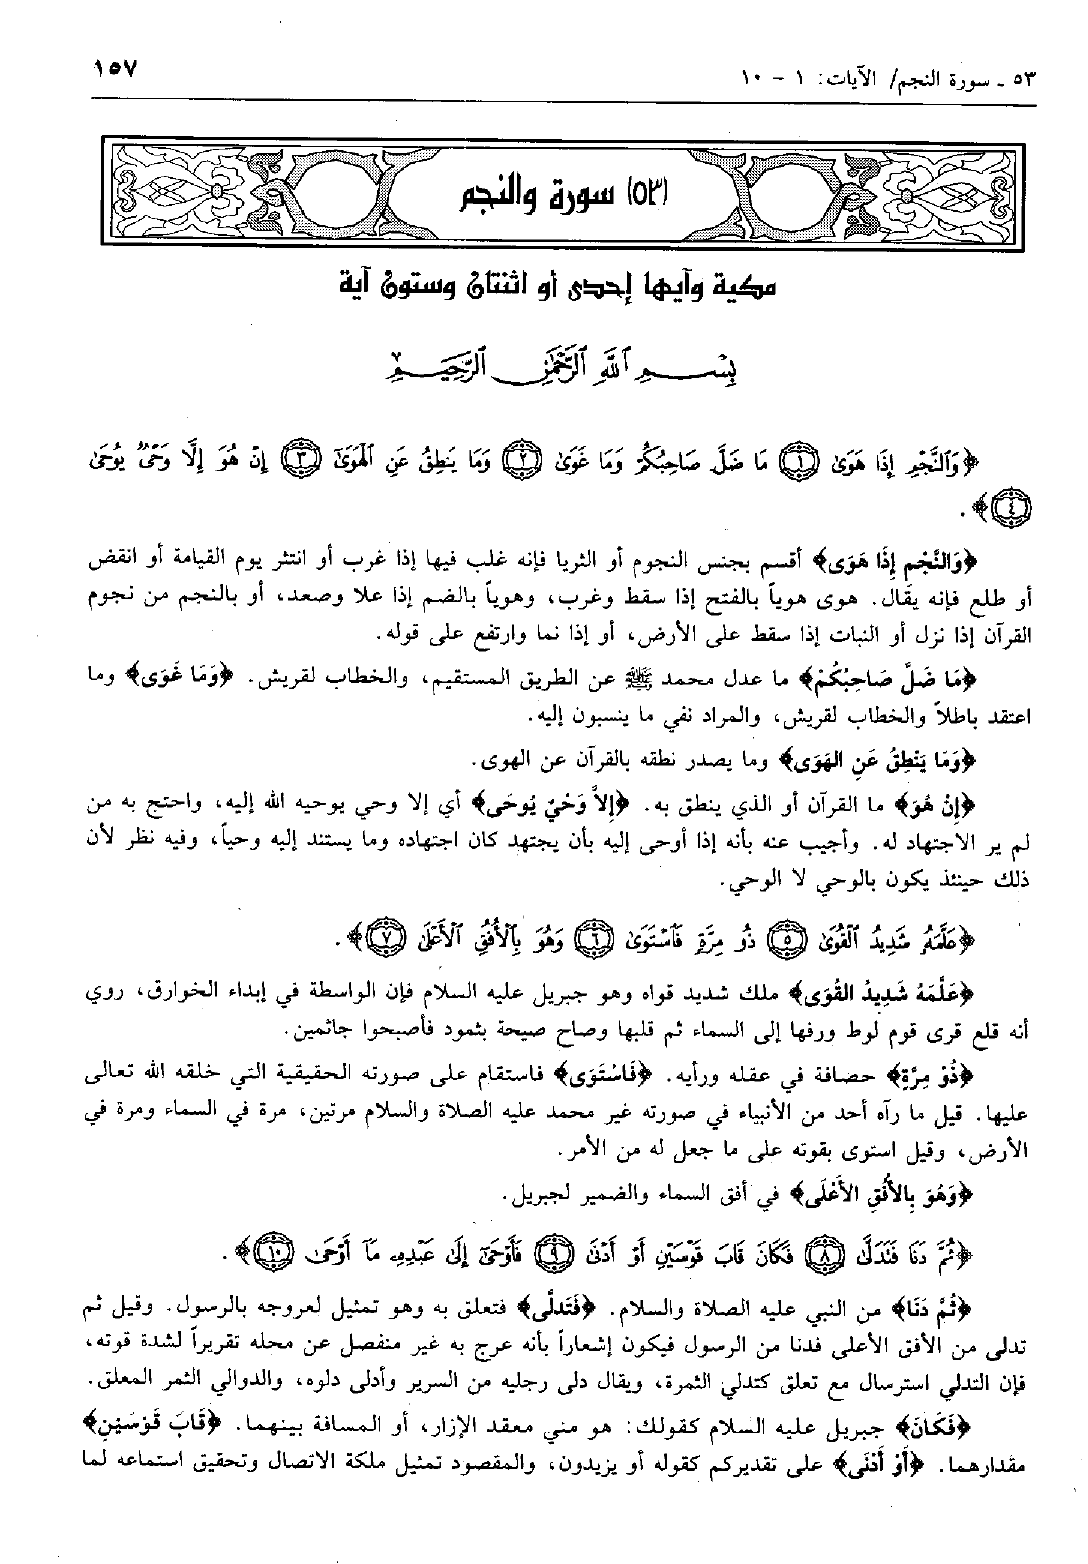 ٥٣ ـ سورة النجم/ الآيات: ١ - ١٠
١٥٧
(٥٣) سورة والنجم
مكية وآيها إحدى أو اثنتان وستون آية
بِسْمِ ٱللَّهِ ٱلرَّحْمَٰنِ ٱلرَّحِيمِ
﴿وَٱلنَّجْمِ إِذَا هَوَىٰ (١) مَا ضَلَّ صَاحِبُكُمْ وَمَا غَوَىٰ (٢) وَمَا يَنطِقُ عَنِ ٱلْهَوَىٰٓ (٣) إِنْ هُوَ إِلَّا وَحْىٌ يُوحَىٰ
(٤)﴾.
﴿وَالنَّجْمِ إِذَا هَوَى﴾ أقسم بجنس النجوم أو الثريا فإنه غلب فيها إذا غرب أو انتثر يوم القيامة أو انقض
أو طلع فإنه يقال. هوى هوياً بالفتح إذا سقط وغرب، وهوياً بالضم إذا علا وصعد، أو بالنجم من نجوم
القرآن إذا نزل أو النبات إذا سقط على الأرض، أو إذا نما وارتفع على قوله.
﴿مَا ضَلَّ صَاحِبُكُمْ﴾ ما عدل محمد ﷺ عن الطريق المستقيم، والخطاب لقريش. ﴿وَمَا غَوَى﴾ وما
اعتقد باطلاً والخطاب لقريش، والمراد نفي ما ينسبون إليه.
﴿وَمَا يَنْطِقُ عَنِ الهَوَى﴾ وما يصدر نطقه بالقرآن عن الهوى.
﴿إِنْ هُوَ﴾ ما القرآن أو الذي ينطق به. ﴿إِلاَّ وَحْيٌ يُوحَى﴾ أي إلا وحي يوحيه الله إليه، واحتج به من
لم ير الاجتهاد له. وأجيب عنه بأنه إذا أوحى إليه بأن يجتهد كان اجتهاده وما يستند إليه وحياً، وفيه نظر لأن
ذلك حينئذ يكون بالوحي لا الوحي.
﴿عَلَّمَهُۥ شَدِيدُ ٱلْقُوَىٰ (٥) ذُو مِرَّةٍ فَٱسْتَوَىٰ (٦) وَهُوَ بِٱلْأُفُقِ ٱلْأَعْلَىٰ (٧)﴾.
﴿عَلَّمَهُ شَدِيدُ القُوَى﴾ ملك شديد قواه وهو جبريل عليه السلام فإن الواسطة في إبداء الخوارق، روي
أنه قلع قرى قوم لوط ورفها إلى السماء ثم قلبها وصاح صيحة بثمود فأصبحوا جاثمين.
﴿ذُوْ مِرَّةٍ﴾ حصافة في عقله ورأيه. ﴿فَاسْتَوَى﴾ فاستقام على صورته الحقيقية التي خلقه الله تعالى
عليها. قيل ما رآه أحد من الأنبياء في صورته غير محمد عليه الصلاة والسلام مرتين، مرة في السماء ومرة في
الأرض، وقيل استوى بقوته على ما جعل له من الأمر.
﴿وَهُوَ بِالأُفُقِ الأَعْلَى﴾ في أفق السماء والضمير لجبريل.
﴿ثُمَّ دَنَا فَتَدَلَّىٰ (٨) فَكَانَ قَابَ قَوْسَيْنِ أَوْ أَدْنَىٰ (٩) فَأَوْحَىٰٓ إِلَىٰ عَبْدِهِۦ مَآ أَوْحَىٰ (١٠)﴾.
﴿ثُمَّ دَنَا﴾ من النبي عليه الصلاة والسلام. ﴿فَتَدلَّى﴾ فتعلق به وهو تمثيل لعروجه بالرسول. وقيل ثم
تدلى من الأفق الأعلى فدنا من الرسول فيكون إشعاراً بأنه عرج به غير منفصل عن محله تقريراً لشدة قوته،
فإن التدلي استرسال مع تعلق كتدلي الثمرة، ويقال دلى رجليه من السرير وأدلى دلوه، والدوالي الثمر المعلق.
﴿فَكَانَ﴾ جبريل عليه السلام كقولك: هو مني معقد الإزار، أو المسافة بينهما. ﴿قَابَ قَوْسَيْنِ﴾
مقدارهما. ﴿أَوْ أَدْنَى﴾ على تقديركم كقوله أو يزيدون، والمقصود تمثيل ملكة الاتصال وتحقيق استماعه لما